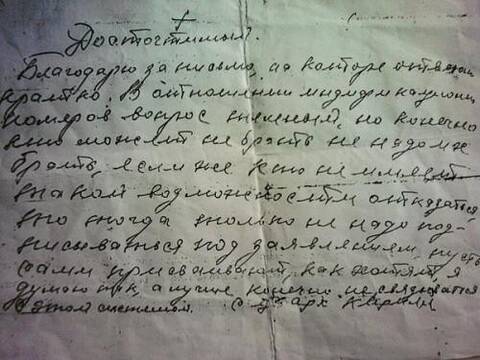 +
Досточтимый.
Благодарю за письмо, на которе ответи
кратко. В отношении индефикационн
номеров вопрос сложный, но конечно
кто может не брать не надо их
брать, если же кто не имеет
такой возможности отказаться
то тогда только не надо под-
писываться под заявлением, пусть
сами присваивают, как хотят, я
думаю так, а лучше конечно не связываться
с этой системой. арх Кирилл